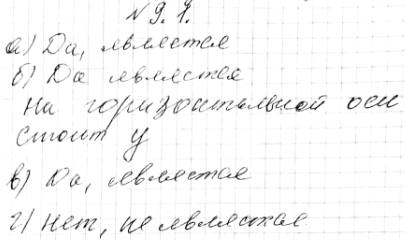 №9.1.
а) Да, является
б) Да является
На горизонтальной оси
стоит у
в) Да, является
г) Нет, не является